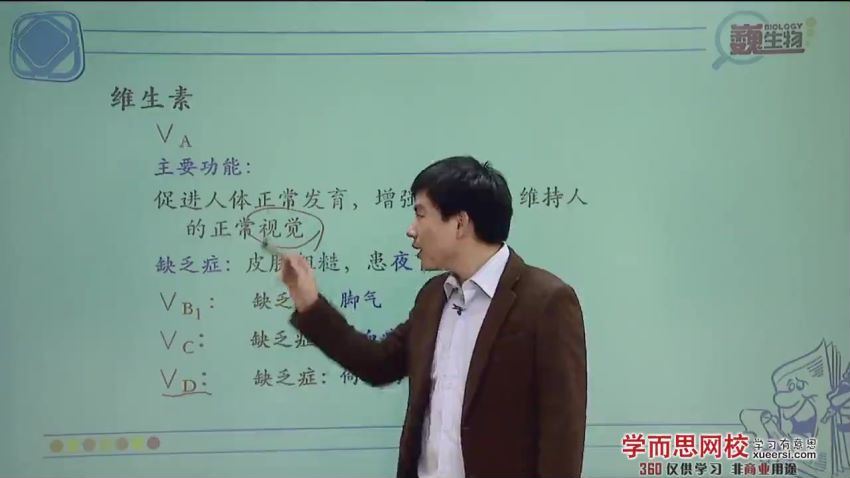 BIOLOGY
巍生物
维生素
V A
主要功能：
促进人体正常发育，增强 维持人
的正常视觉
缺乏症：皮肤粗糙，患夜
V B1： 缺乏 脚气
V C： 缺乏症
V D： 缺乏症：
学而思网校 学习有意思
xueersi.com
360 仅供学习 非商业用途